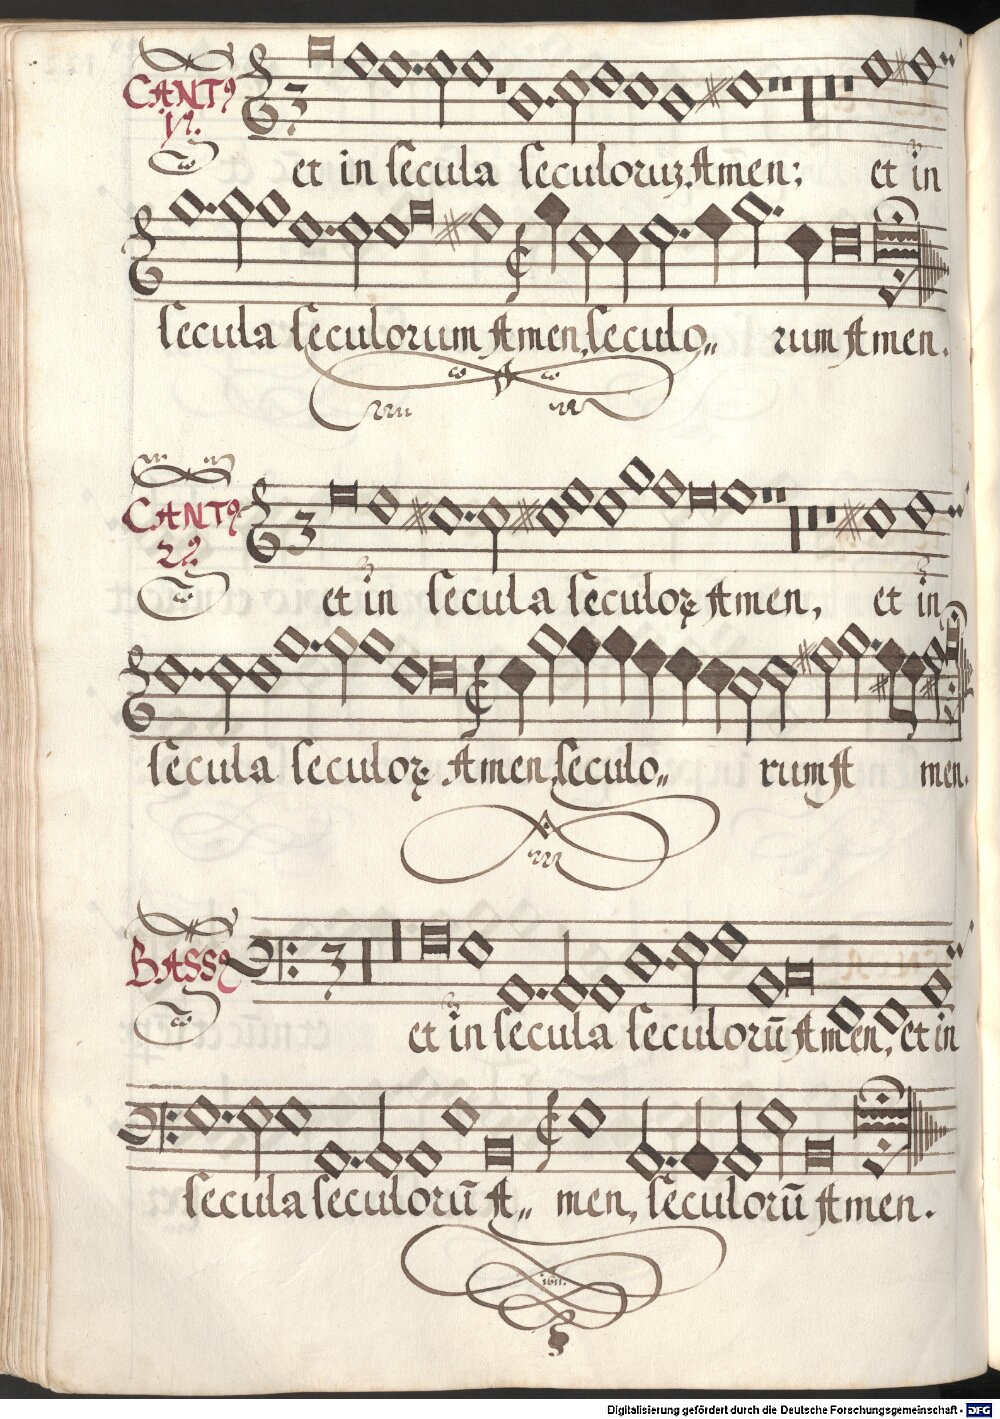 CANTꝯ
et in secula seculoruz. Amen; et in
secula seculorum Amen, seculo,, rum Amen.
CANTꝯ
2ꝯ.
et in secula seculoꝝ Amen, et in
secula seculoꝝ. Amen, seculo,, rum A men.
BASSꝯ
et in secula seculorū Amen, et in
secula seculorū A,, men, seculorū Amen.
1611.
Digitalisierung gefördert durch die Deutsche Forschungsgemeinschaft - DFG